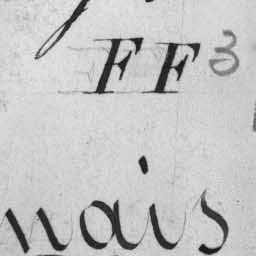 FF 3
mais